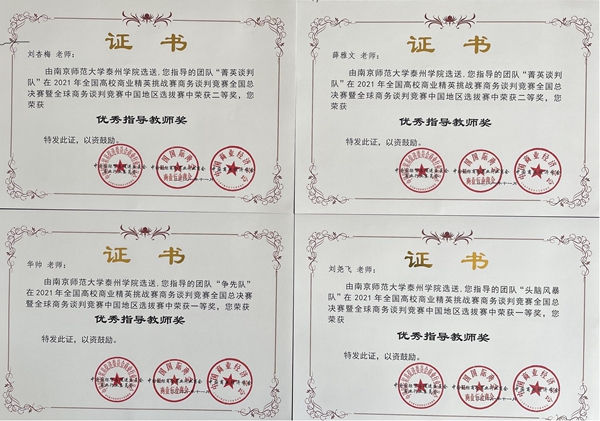 证 书
刘杏梅 老师：
由南京师范大学泰州学院选送，您指导的团队“菁英谈判
队”在 2021 年全国高校商业精英挑战赛商务谈判竞赛全国总
决赛暨全球商务谈判竞赛中国地区选拔赛中荣获二等奖，您
荣获
优秀指导教师奖
特发此证，以资鼓励。
证 书
薛雅文 老师：
由南京师范大学泰州学院选送，您指导的团队“菁英谈判
队”在 2021 年全国高校商业精英挑战赛商务谈判竞赛全国总
决赛暨全球商务谈判竞赛中国地区选拔赛中荣获二等奖，您
荣获
优秀指导教师奖
特发此证，以资鼓励。
证 书
华帅 老师：
由南京师范大学泰州学院选送，您指导的团队“争先队”
在 2021 年全国高校商业精英挑战赛商务谈判竞赛全国总决赛
暨全球商务谈判竞赛中国地区选拔赛中荣获一等奖，您荣获
优秀指导教师奖
特发此证，以资鼓励。
证 书
刘尧飞 老师：
由南京师范大学泰州学院选送，您指导的团队“头脑风暴
队”在 2021 年全国高校商业精英挑战赛商务谈判竞赛全国总
决赛暨全球商务谈判竞赛中国地区选拔赛中荣获一等奖，您
荣获
优秀指导教师奖
特发此证，以资鼓励。